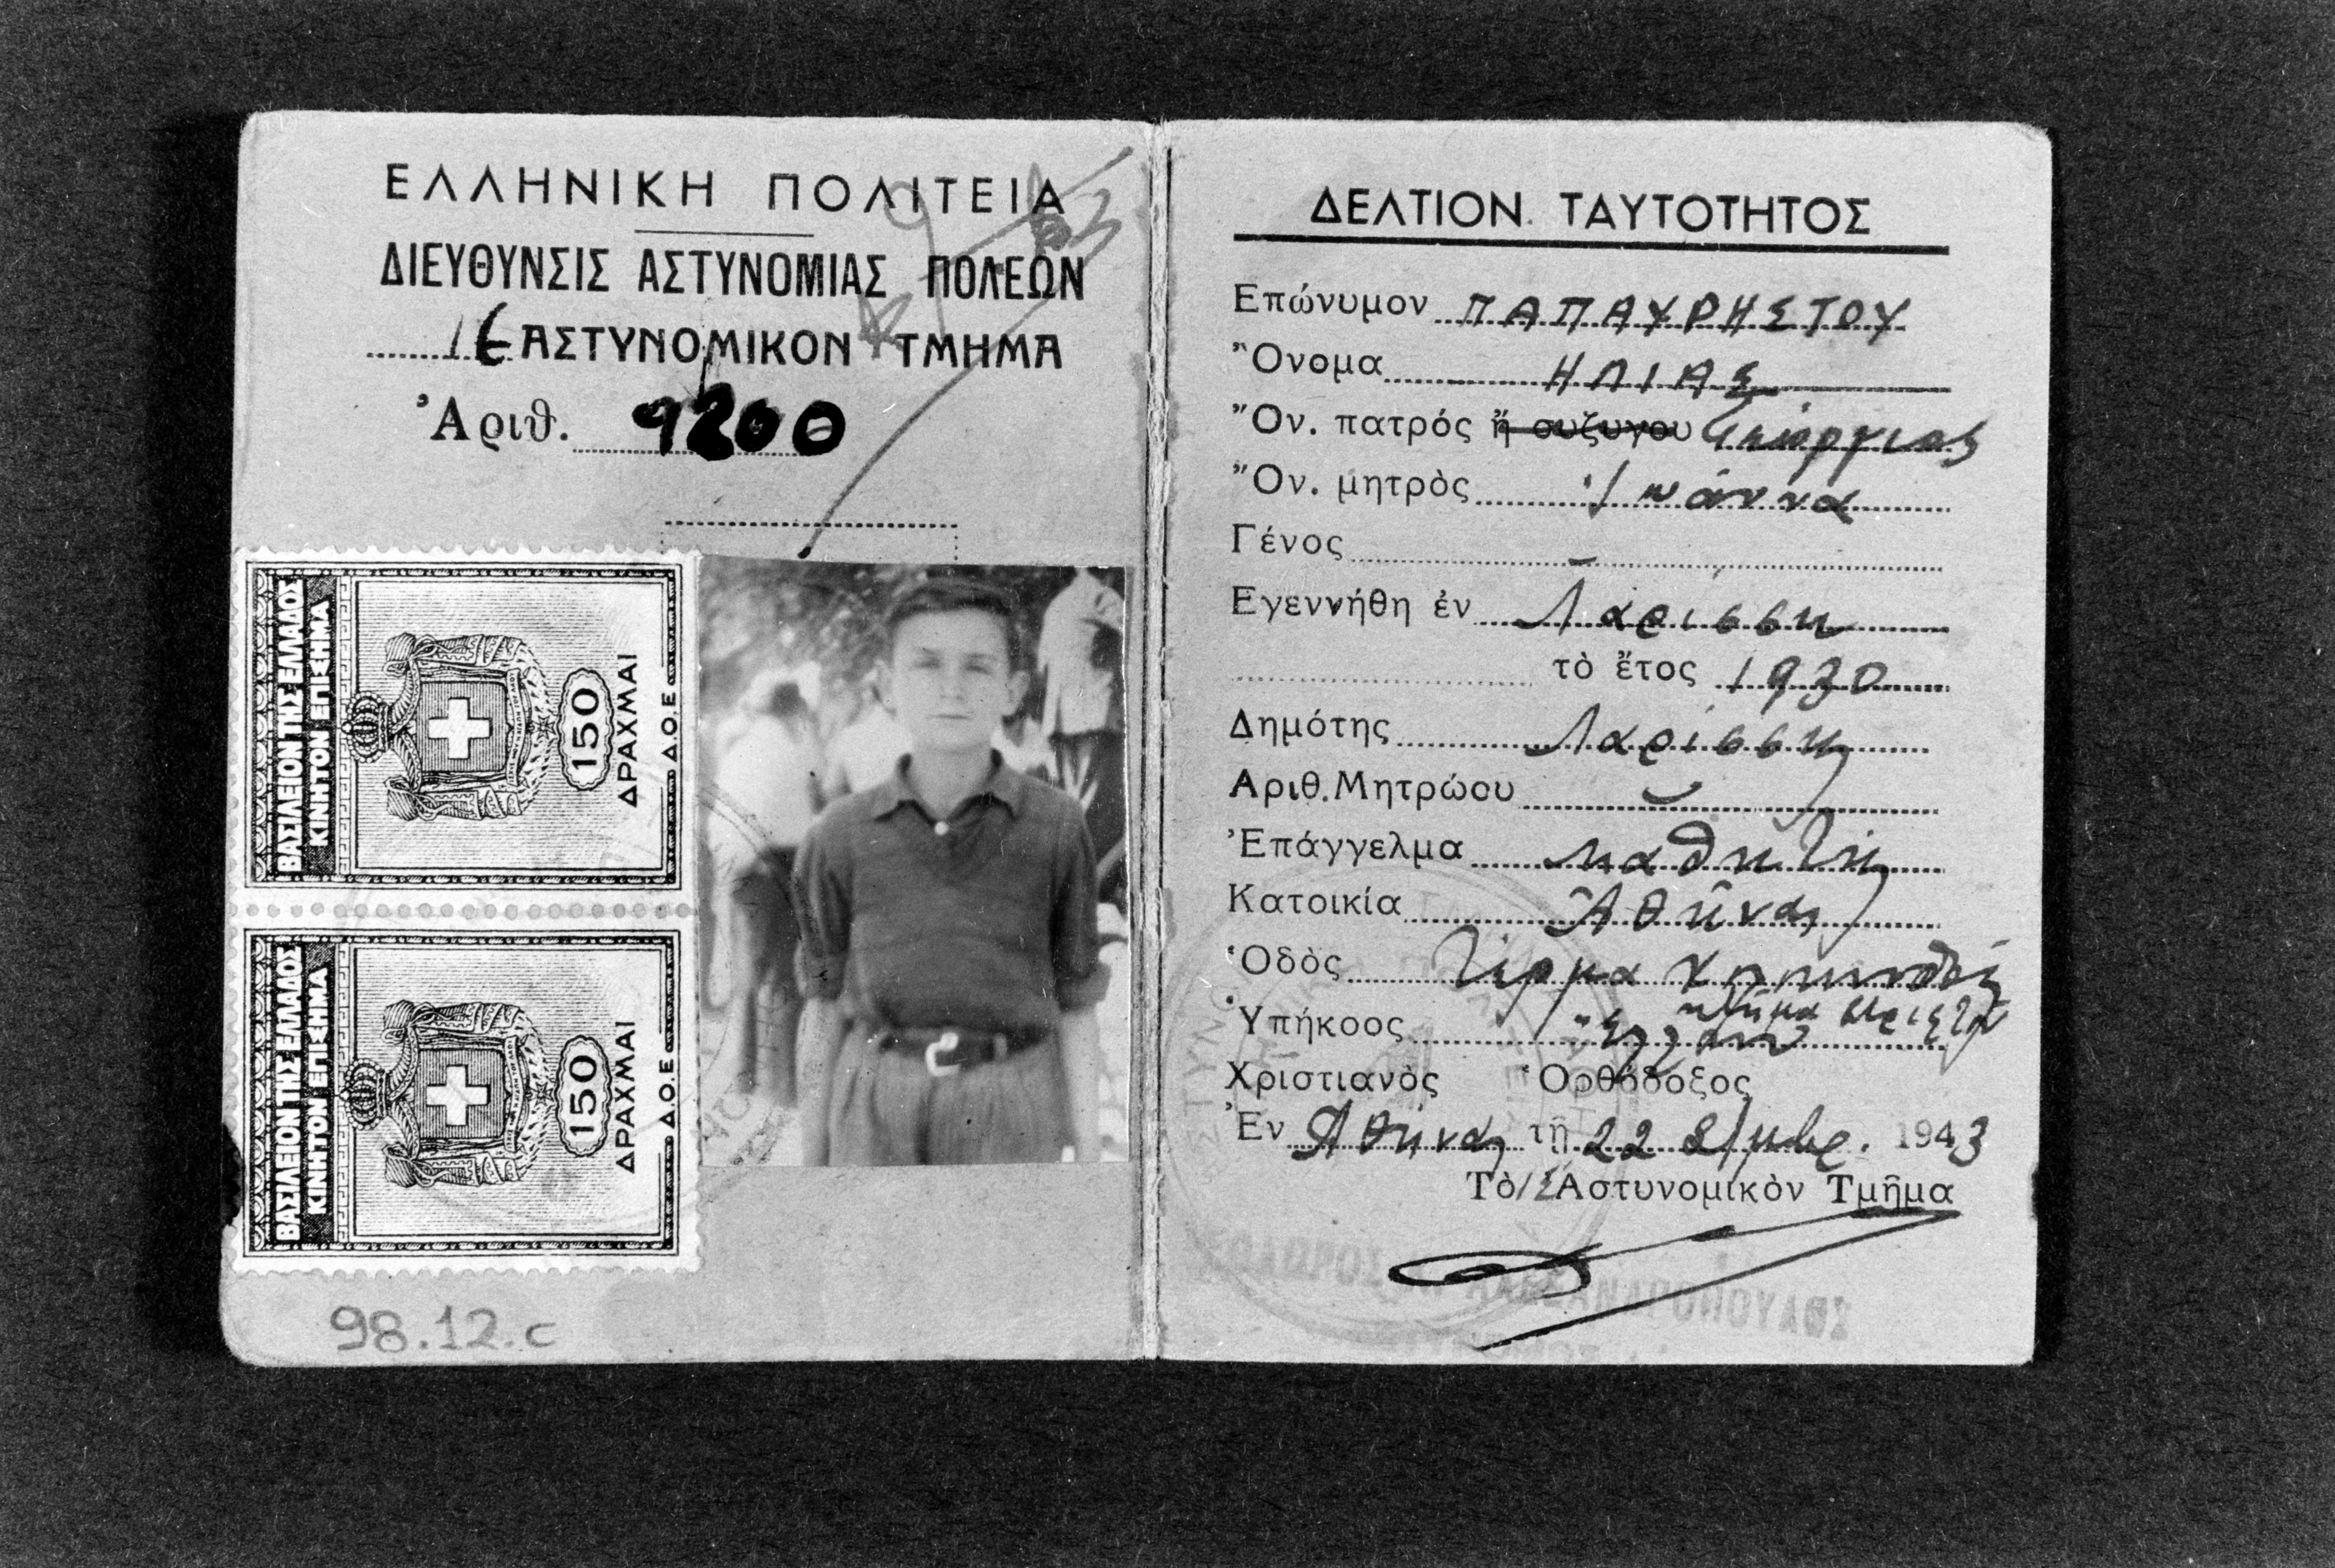 ΕΛΛΗΝΙΚΗ ΠΟΛΙΤΕΙΑ
ΔΙΕΥΘΥΝΣΙΣ ΑΣΤΥΝΟΜΙΑΣ ΠΟΛΕΩΝ
ΙΕ ΑΣΤΥΝΟΜΙΚΟΝ ΤΜΗΜΑ
Ἀριθ. 9200
ΒΑΣΙΛΕΙΟΝ ΤΗΣ ΕΛΛΑΔΟΣ
ΚΙΝΗΤΟΝ ΕΠΙΣΗΜΑ
150
ΔΡΑΧΜΑΙ
Δ.Ο.Ε
ΒΑΣΙΛΕΙΟΝ ΤΗΣ ΕΛΛΑΔΟΣ
ΚΙΝΗΤΟΝ ΕΠΙΣΗΜΑ
150
ΔΡΑΧΜΑΙ
Δ.Ο.Ε
98.12.c
ΔΕΛΤΙΟΝ ΤΑΥΤΟΤΗΤΟΣ
Επώνυμον ΠΑΠΑΧΡΗΣΤΟΥ
Ὄνομα ΗΛΙΑΣ
Ὄν. πατρός ἢ συζυγου Γεώργιος
Ὄν. μητρὸς Ἰωάννα
Γένος -
Εγεννήθη ἐν Λαρίσση
τὸ ἔτος 1930
Δημότης Λαρίσσης
Αριθ. Μητρώου
Ἐπάγγελμα μαθητής
Κατοικία Ἀθῆναι
Ὁδὸς Τέρμα
κτῆμα
Ὑπήκοος Ἕλλην
Χριστιανὸς Ὀρθόδοξος
Ἐν Ἀθήναις τῇ 22 8/μβρ. 1943
Τὸ ΙΕ Αστυνομικὸν Τμῆμα
ΑΛΕΞΑΝΔΡΟΠΟΥΛΟΣ